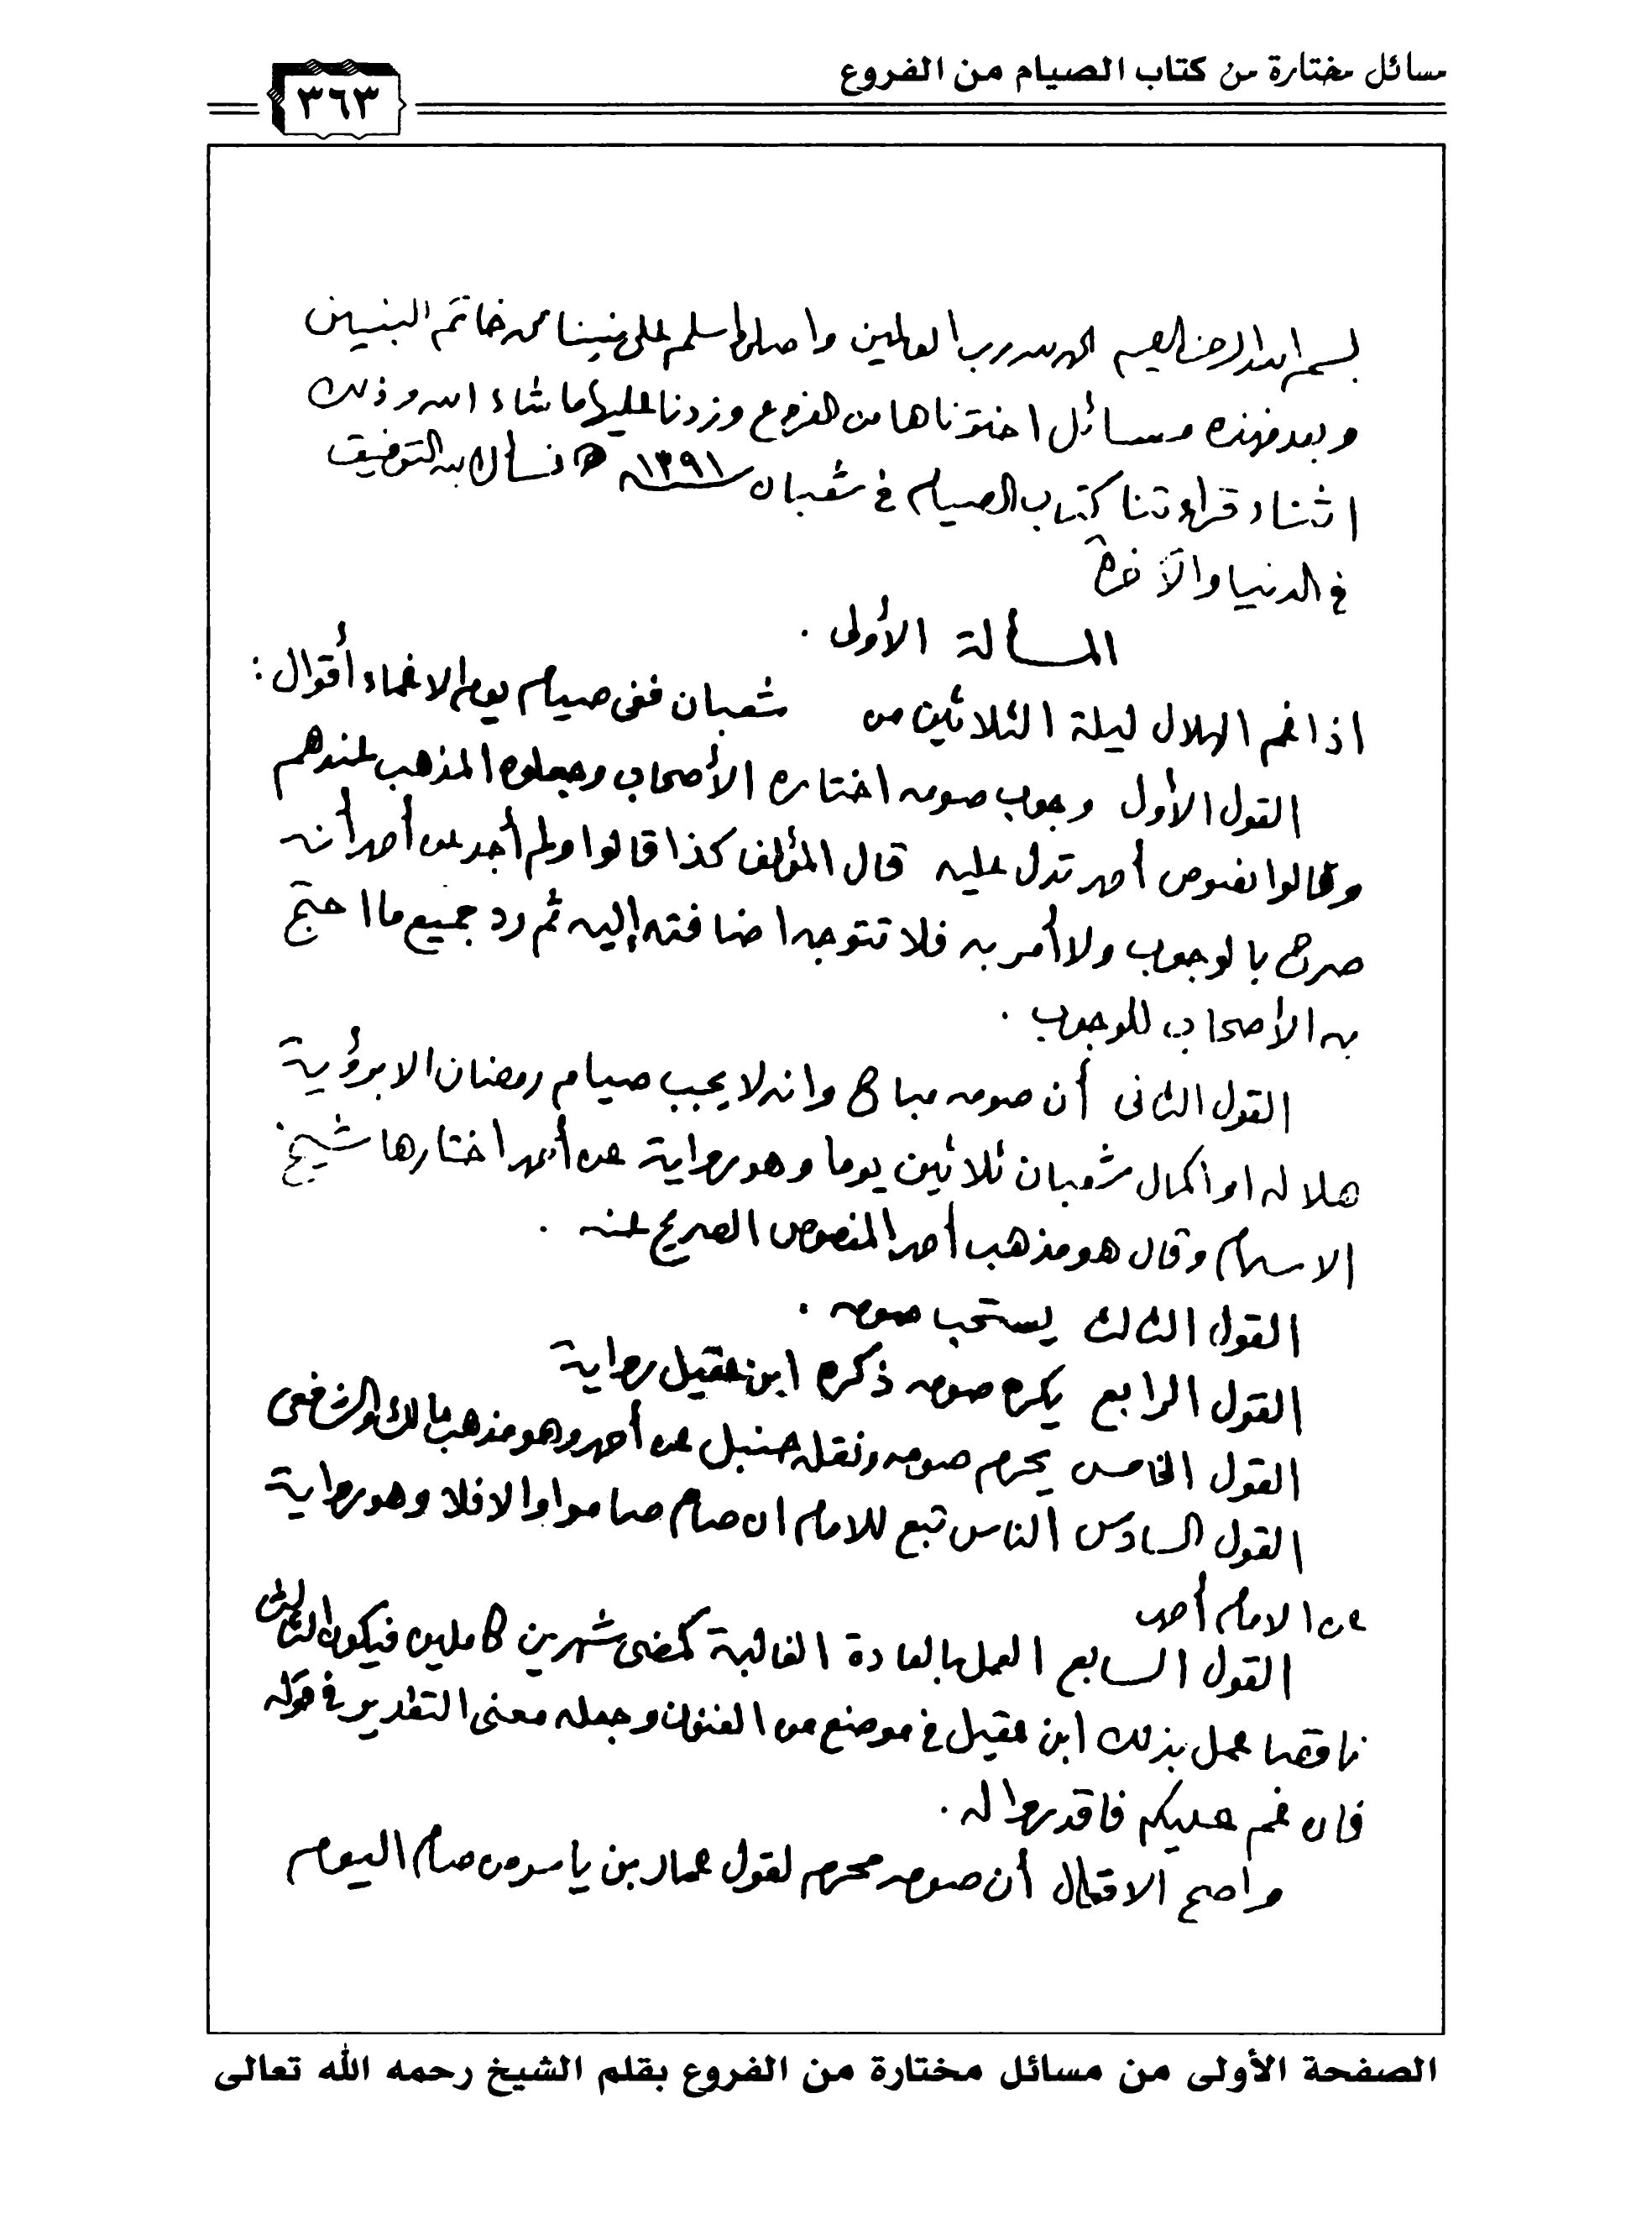 مسائل مختارة من كتاب الصيام من الفروع
٣٦٣
بسم الله الرحمن الرحيم الحمد لله رب العالمين واصلي واسلم على نبينا محمد خاتم النبيين
وبعد فهذه مسائل اخترناها من الفروع وزدنا عليها ما شاء الله وذلك
اثناء قراءتنا كتاب الصيام في شعبان سنة ١٣٩١ هـ نسأل الله التوفيق
في الدنيا والآخرة
المسألة الأولى .
اذا غم الهلال ليلة الثلاثين من شعبان ففي صيام يوم الاغماء أقوال :
القول الأول وجوب صومه اختاره الأصحاب وجعلوه المذهب عندهم
وقالوا نصوص أحمد تدل عليه قال المؤلف كذا قالوا ولم أجد عن أحمد أنه
صرح بالوجوب ولا أمر به فلا تتوجه اضافته إليه ثم رد جميع ما احتج
به الأصحاب للوجوب .
القول الثاني أن صومه مباح وانه لا يجب صيام رمضان الا برؤية
هلاله او اكمال شعبان ثلاثين يوما وهو رواية عن أحمد اختارها شيخ
الاسلام وقال هو مذهب أحمد المنصوص الصريح عنه .
القول الثالث يستحب صومه .
القول الرابع يكره صومه ذكره ابن عقيل رواية
القول الخامس يحرم صومه ونقله حنبل عن أحمد وهو مذهب مالك والشافعي
القول السادس الناس تبع للامام ان صام صاموا والا فلا وهو رواية
عن الامام أحمد
القول السابع العمل بالعادة الغالبة كمضى شهرين كاملين فيكون الثالث
ناقصا عمل بذلك ابن عقيل في موضع من الفنون وجعله معنى التقدير في قوله
فان غم عليكم فاقدروا له .
واصح الاقوال أن صومه محرم لقول عمار بن ياسر من صام اليوم
الصفحة الأولى من مسائل مختارة من الفروع بقلم الشيخ رحمه الله تعالى